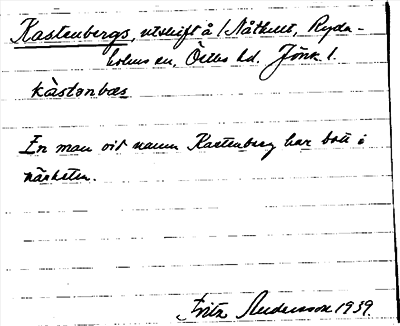 Kastenbergs, utskift å 1 Nåthult, Ryda-
holms sn, Östbo hd. Jönk l.
kàstənbæs
En man vid namn Kastenberg har bott i
närheten.
Fritz Andersson 1939.